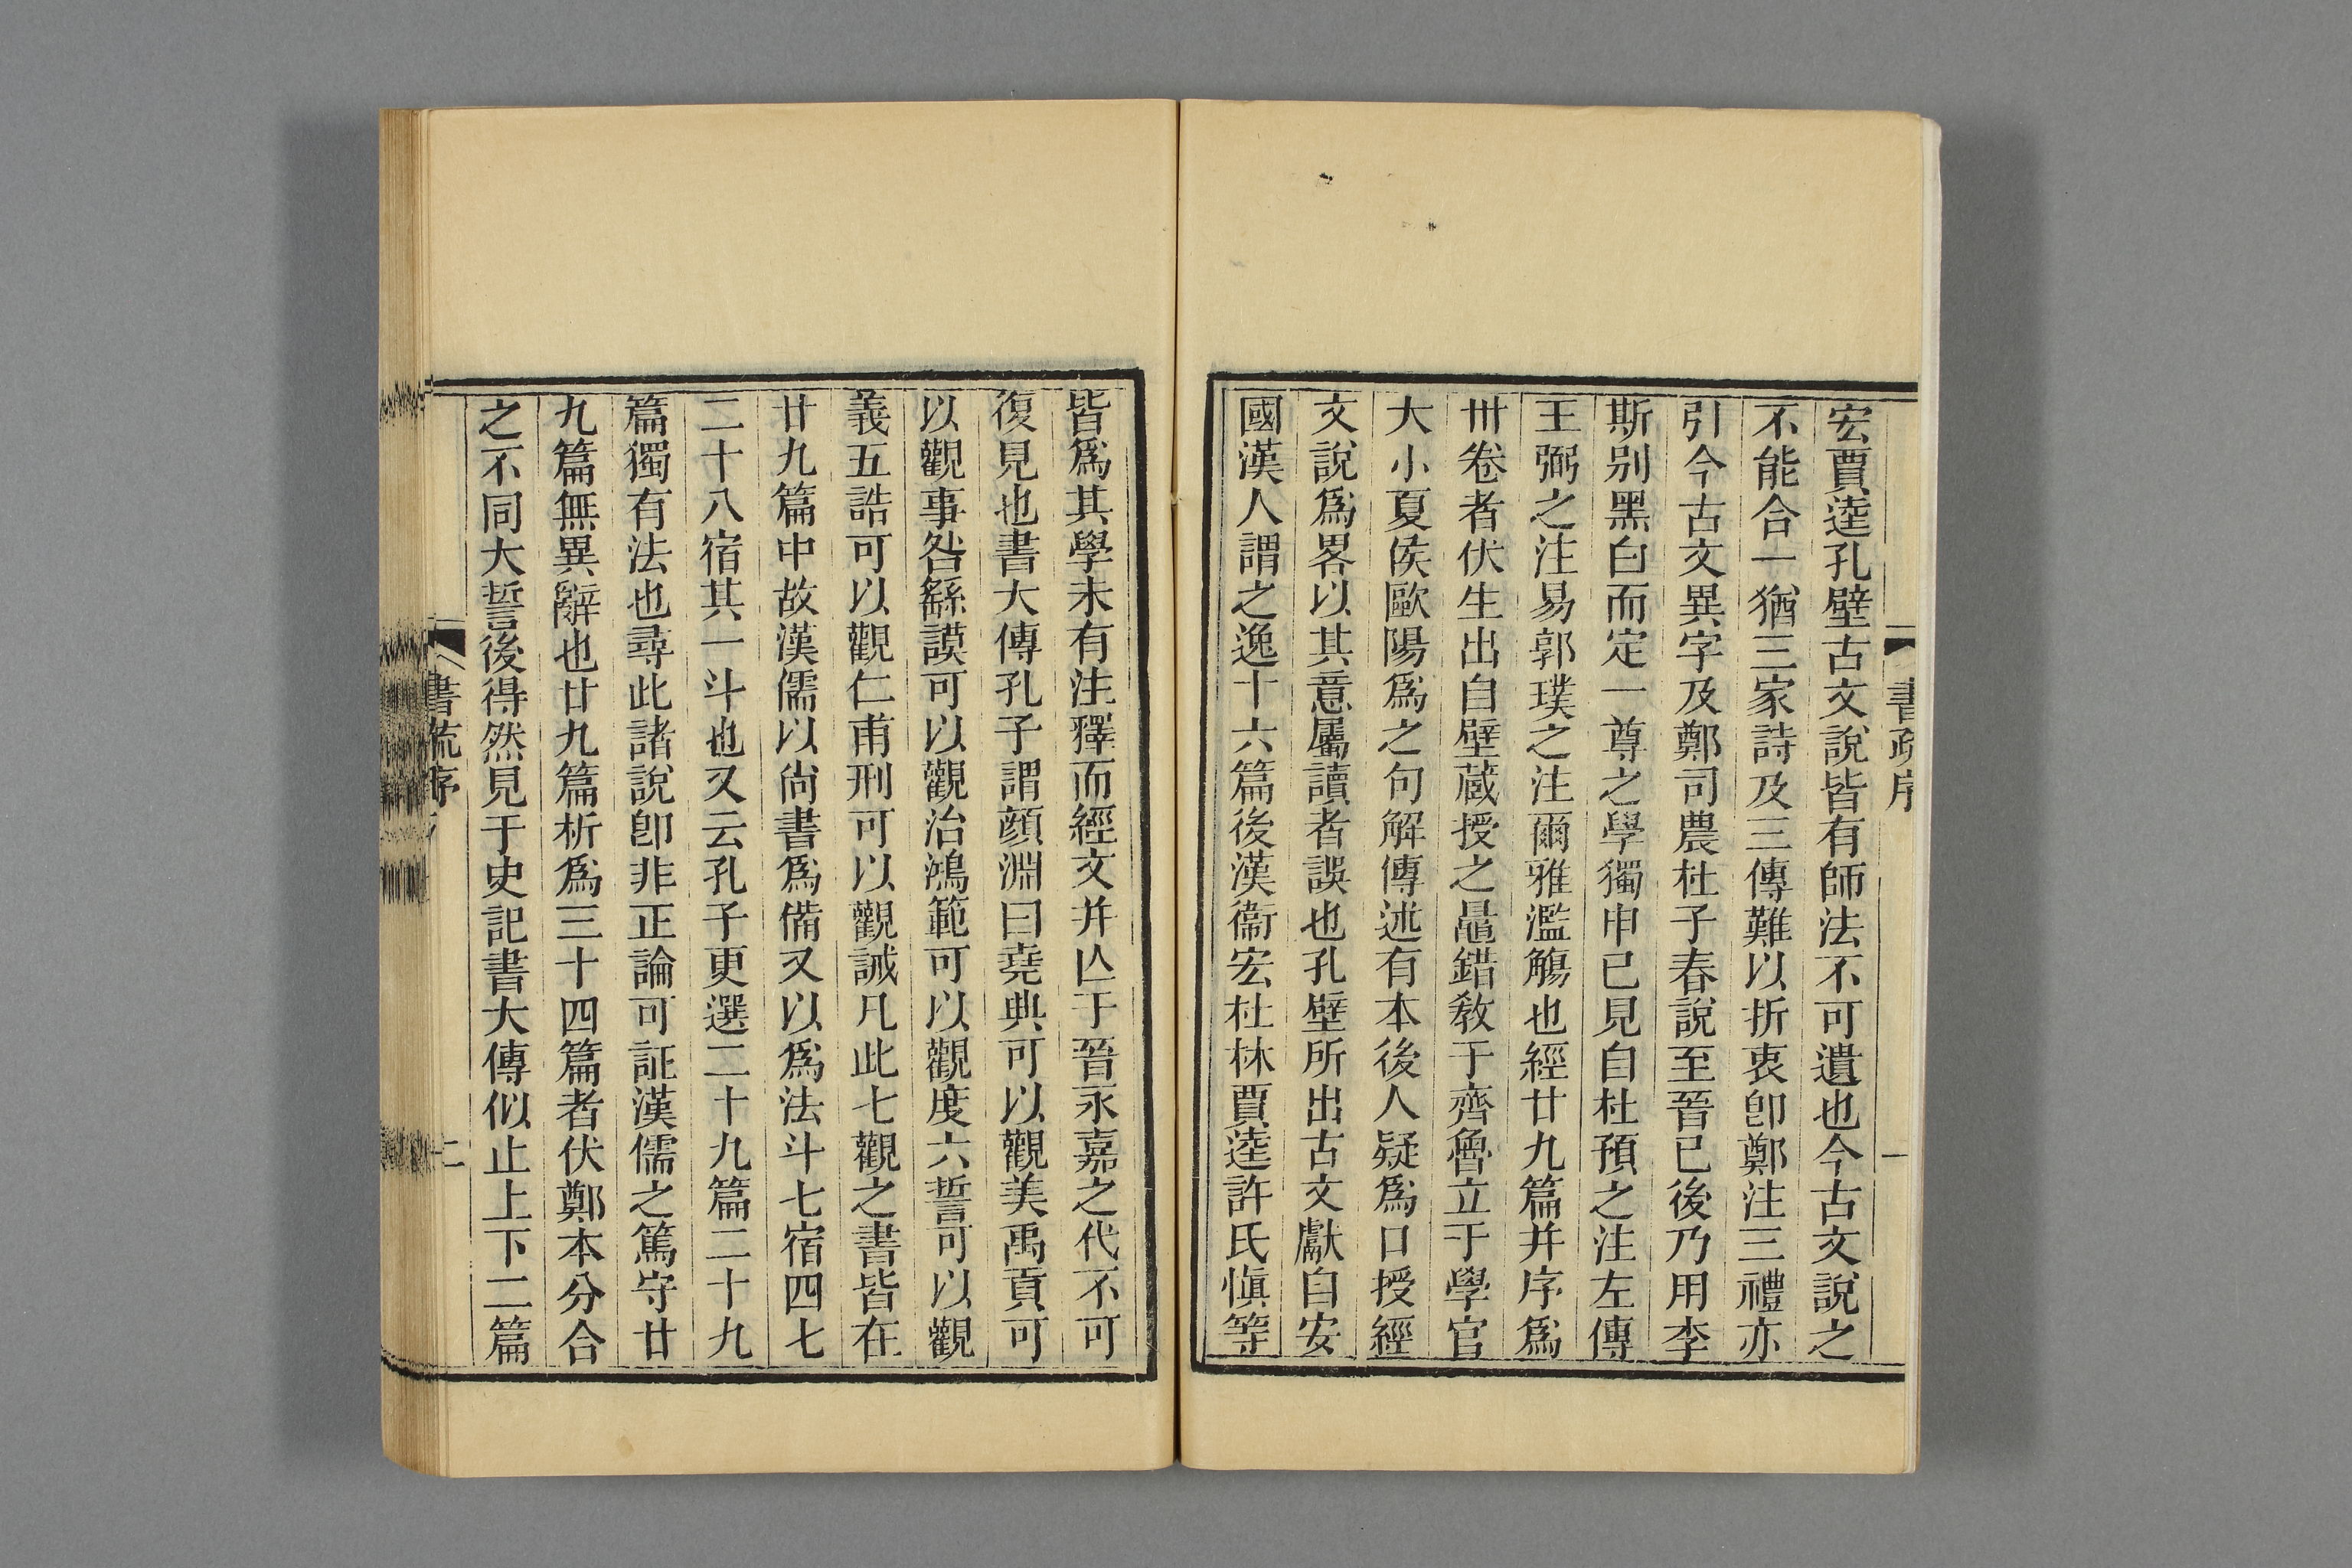 書疏序
一
宏賈逵孔壁古文說皆有師法不可遺也今古文說之
不能合一猶三家詩及三傳難以折衷卽鄭注三禮亦
引今古文異字及鄭司農杜子春說至晉已後乃用李
斯别黑白而定一尊之學獨申已見自杜預之注左傳
王弼之注易郭璞之注爾雅濫觴也經廿九篇并序爲
卅卷者伏生出自壁藏授之鼂錯敎于齊魯立于學官
大小夏侯歐陽爲之句解傳述有本後人疑爲口授經
文說爲畧以其意屬讀者誤也孔壁所出古文獻自安
國漢人謂之逸十六篇後漢衞宏杜林賈逵許氏愼等
皆爲其學未有注釋而經文并亾于晉永嘉之代不可
復見也書大傳孔子謂顔淵曰堯典可以觀美禹貢可
以觀事咎繇謨可以觀治鴻範可以觀度六誓可以觀
義五誥可以觀仁甫刑可以觀誡凡此七觀之書皆在
廿九篇中故漢儒以尙書爲備又以爲法斗七宿四七
二十八宿其一斗也又云孔子更選二十九篇二十九
篇獨有法也尋此諸說卽非正論可証漢儒之篤守廿
九篇無異辭也廿九篇析爲三十四篇者伏鄭本分合
之不同大誓後得然見于史記書大傳似止上下二篇
書疏序
二